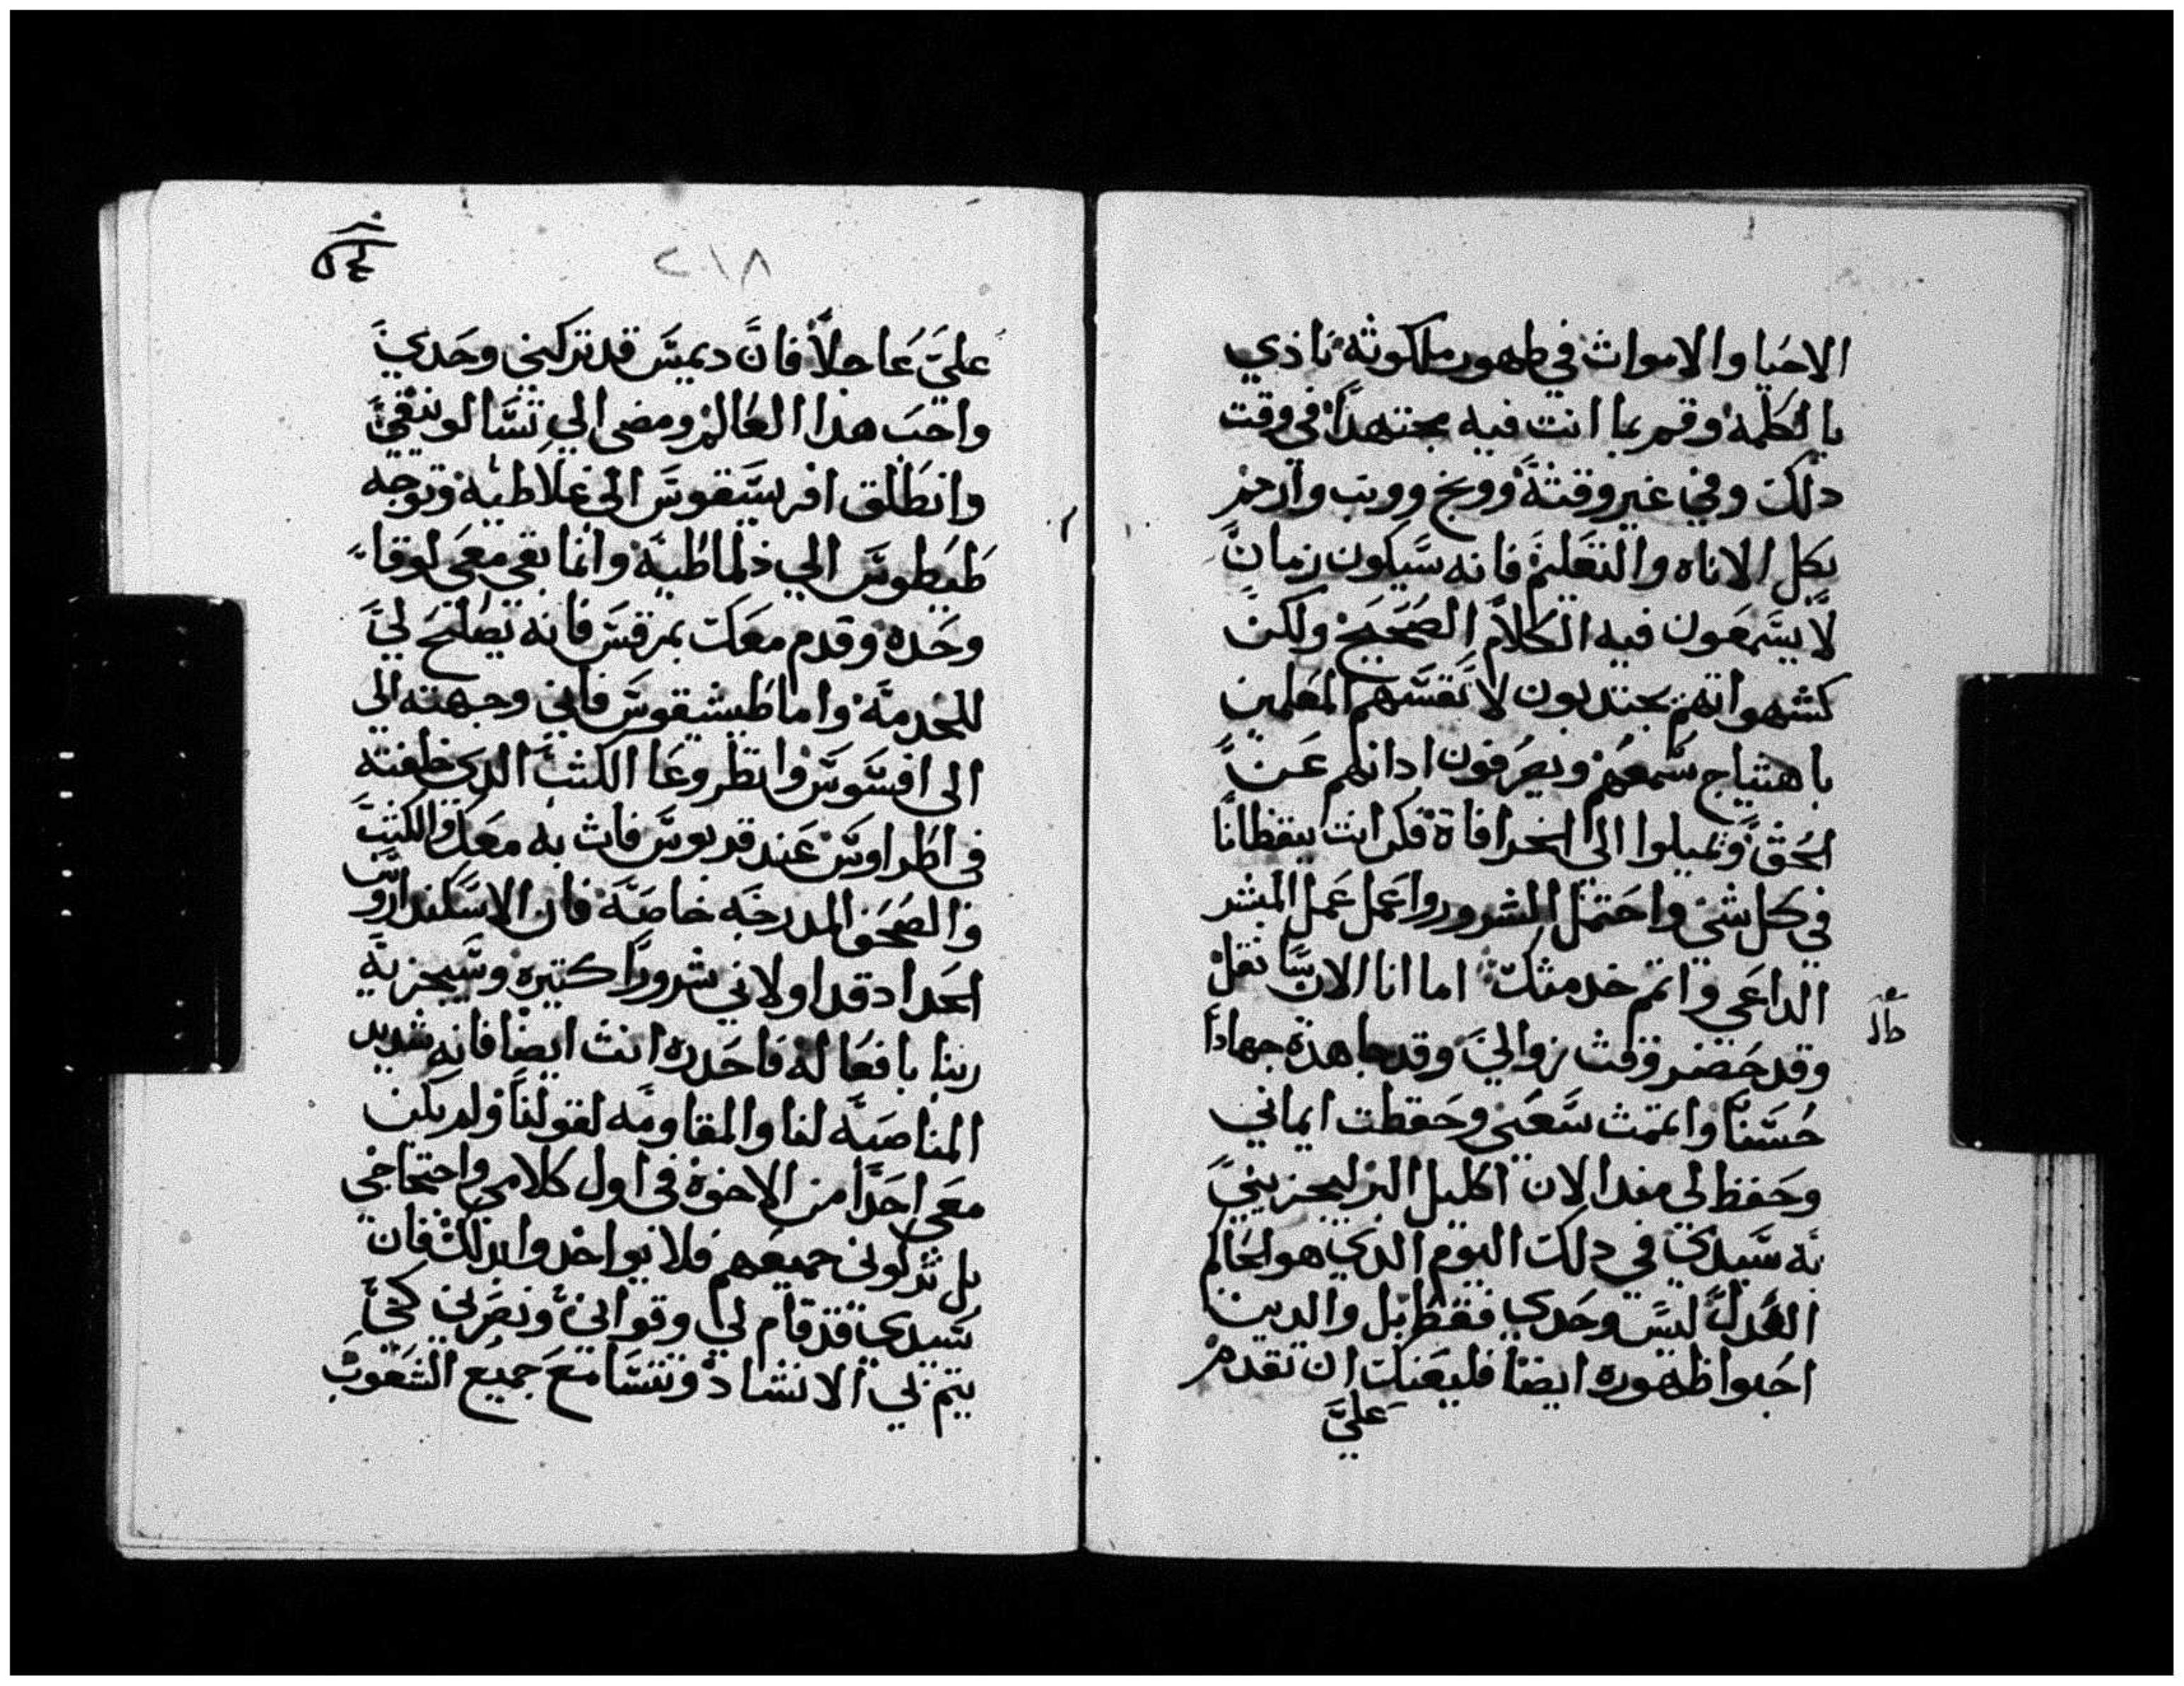 الاحيا والاموات في ظهور ملكوته ناذي
بالكلمه وقم بما انت فيه مجتهداً في وقت
دلك وفي غير وقته ووبخ ووبب وازجر
بكل الاناه والتعليم فانه سيكون زمان
لا يسمعون فيه الكلام الصحيح ولكن
كشهواتهم يجتدبون لانفسهم المعلمين
باهتياج سمعهم ويصرفون ادانهم عن
الحق ويميلوا الى الخرافاة فكن انت يقظانا
في كل شي واحتمل الشرور واعمل عمل المبشر
الداعي واتمم خدمتك اما انا الان
وقد حضر وقت زوالي وقد جاهدة جهاداً
حسناً واتممت سعيي وحفظت ايماني
وحفظ لي مند الان اكليل البر ليجزيني
به سيدي في دلك اليوم الدي هو الحاكم
العدل ليس وحدي فقط بل والدين
احبوا ظهوره ايضا فليعنك ان تقدم
علي
٢١٨
علي عاجلاً فان ديميس قد تركني وحدي
واحب هدا العالم ومضى الي تسالونيقي
وانطلق افريسقوس الى غلاطيه وتوجه
طيطوس الي دلماطيه وانما بقي معي لوقا
وحده وقدم معك بمرقس فانه يصلح لي
للخدمة واما طيشيقوس فاني وجهته الى
الى افسوس وانظر وعا الكتب الدي خلفته
في اطراوس عند قربوس فات به معك والكتب
والصحف المدرجه خاصة فان الاسكندروس
الحداد قد اولاني شروراً كتيره وسيجزيه
ربنا بافعاله فاحدره انت ايضا فانه شديد
المناصبة لنا والمقاومه لقولنا ولم يكن
معي احداً من الاخوة في اول كلامي واحتجاجي
بل تركوني جميعهم فلا يواخدوا بدلك فان
سيدي قد قام لي وقواني ونصرني كي
يتم بي الانشاد وتتسامع جميع الشعوب